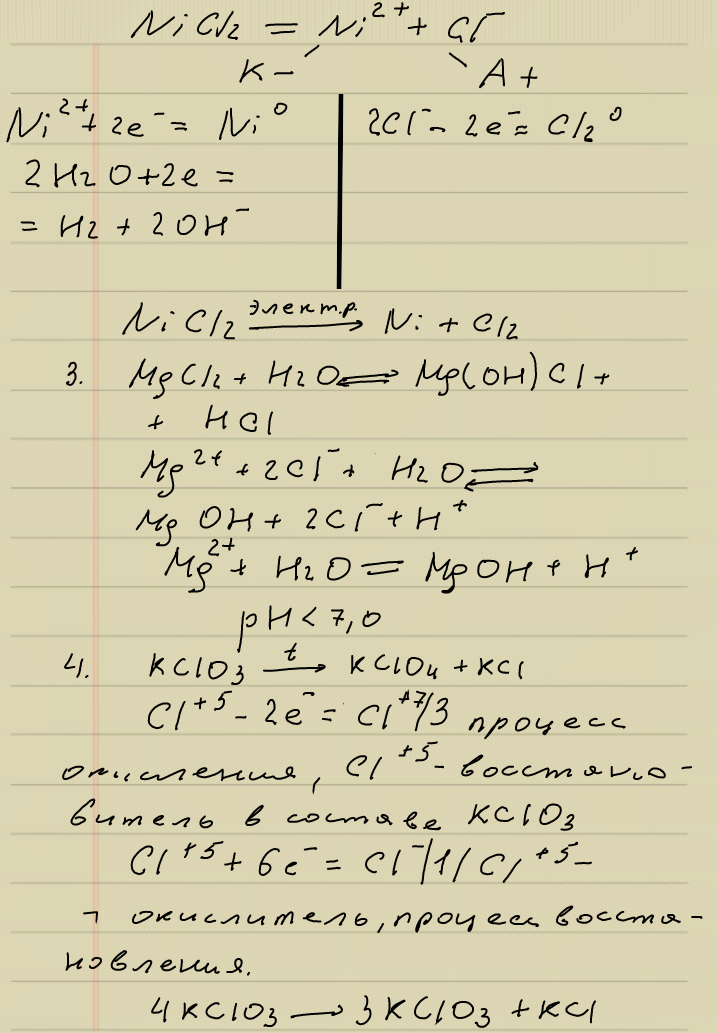 NiCl2 = Ni²⁺ + Cl⁻
K – A +
Ni²⁺ + 2e⁻ = Ni⁰
2H2O + 2e =
= H2 + 2OH⁻
2Cl⁻ – 2e⁻ = Cl2⁰
электр.
NiCl2 → Ni + Cl2
3. MgCl2 + H2O ⇌ Mg(OH)Cl +
+ HCl
Mg²⁺ + 2Cl⁻ + H2O ⇌
MgOH + 2Cl⁻ + H⁺
Mg²⁺ + H2O = MgOH + H⁺
pH < 7,0
t
4. KClO3 → KClO4 + KCl
Cl⁺⁵ – 2e⁻ = Cl⁺⁷/3 процесс
окисления, Cl⁺⁵ – восстано-
витель в составе KClO3
Cl⁺⁵ + 6e⁻ = Cl⁻/1/ Cl⁺⁵ –
¬ окислитель, процесс восста-
новления.
4KClO3 → 3KClO3 + KCl